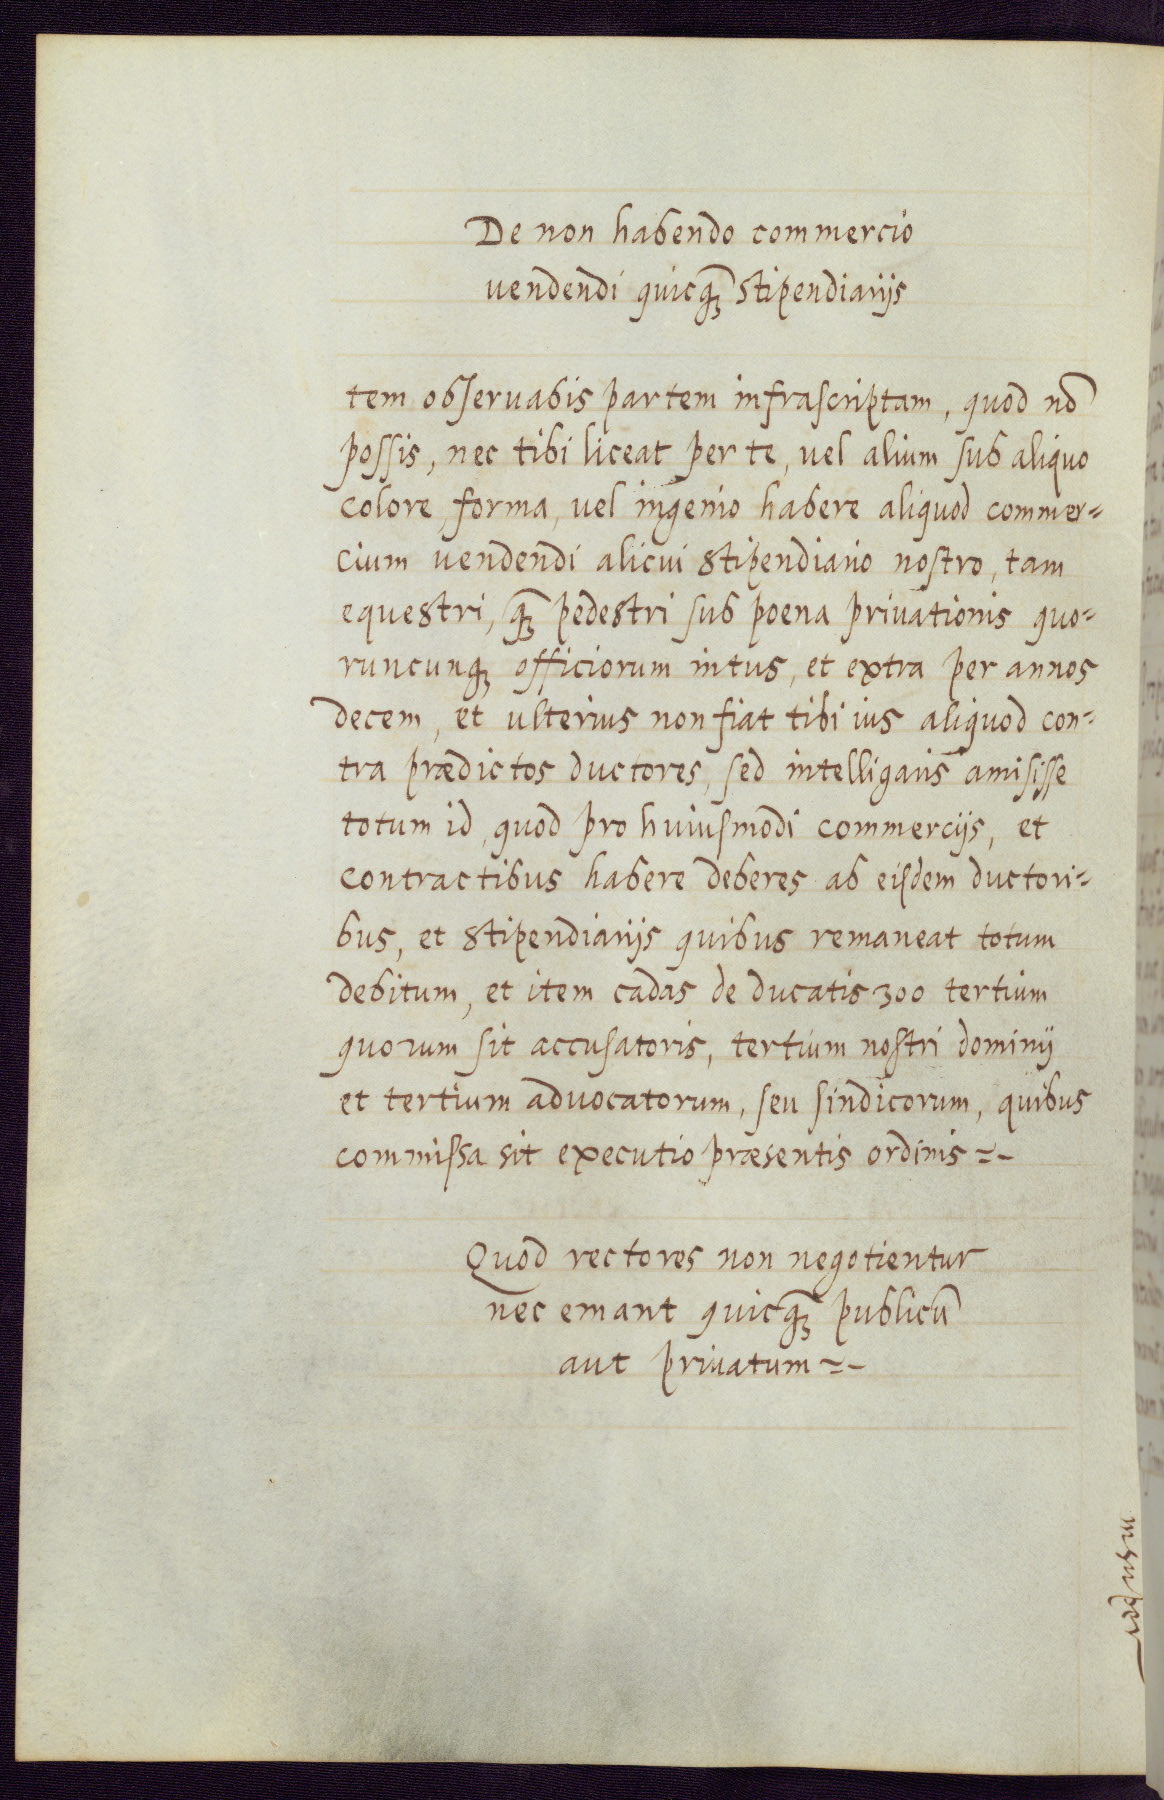 De non habendo commercio
vendendi quicq̃ꝫ stipendiarijs
tem obſeruabis partem infraſcriptam, quod nõ
poſſis, nec tibi liceat per te, vel alium ſub aliquo
colore, forma, vel ingenio habere aliquod commer=
cium vendendi alicui stipendiario noſtro, tam
equestri, q̃ꝫ pedestri ſub poena priuationis quo=
runcunqꝫ officiorum intus, et extra per annos
decem, et ulterius non fiat tibi ius aliquod con=
tra prædictos ductores, ſed intelligaris amiſiſſe
totum id, quod pro huiuſmodi commercijs, et
contractibus habere deberes ab eiſdem ductori=
bus, et stipendiarijs quibus remaneat totum
debitum, et item cadas de ducatis 300 tertium
quorum ſit accuſatoris, tertium noſtri dominij
et tertium aduocatorum, ſeu ſindicorum, quibus
commiſſa sit executio præsentis ordinis =-
Quod rectores non negotientur
nec emant quicq̃ꝫ publicũ
aut priuatum =-